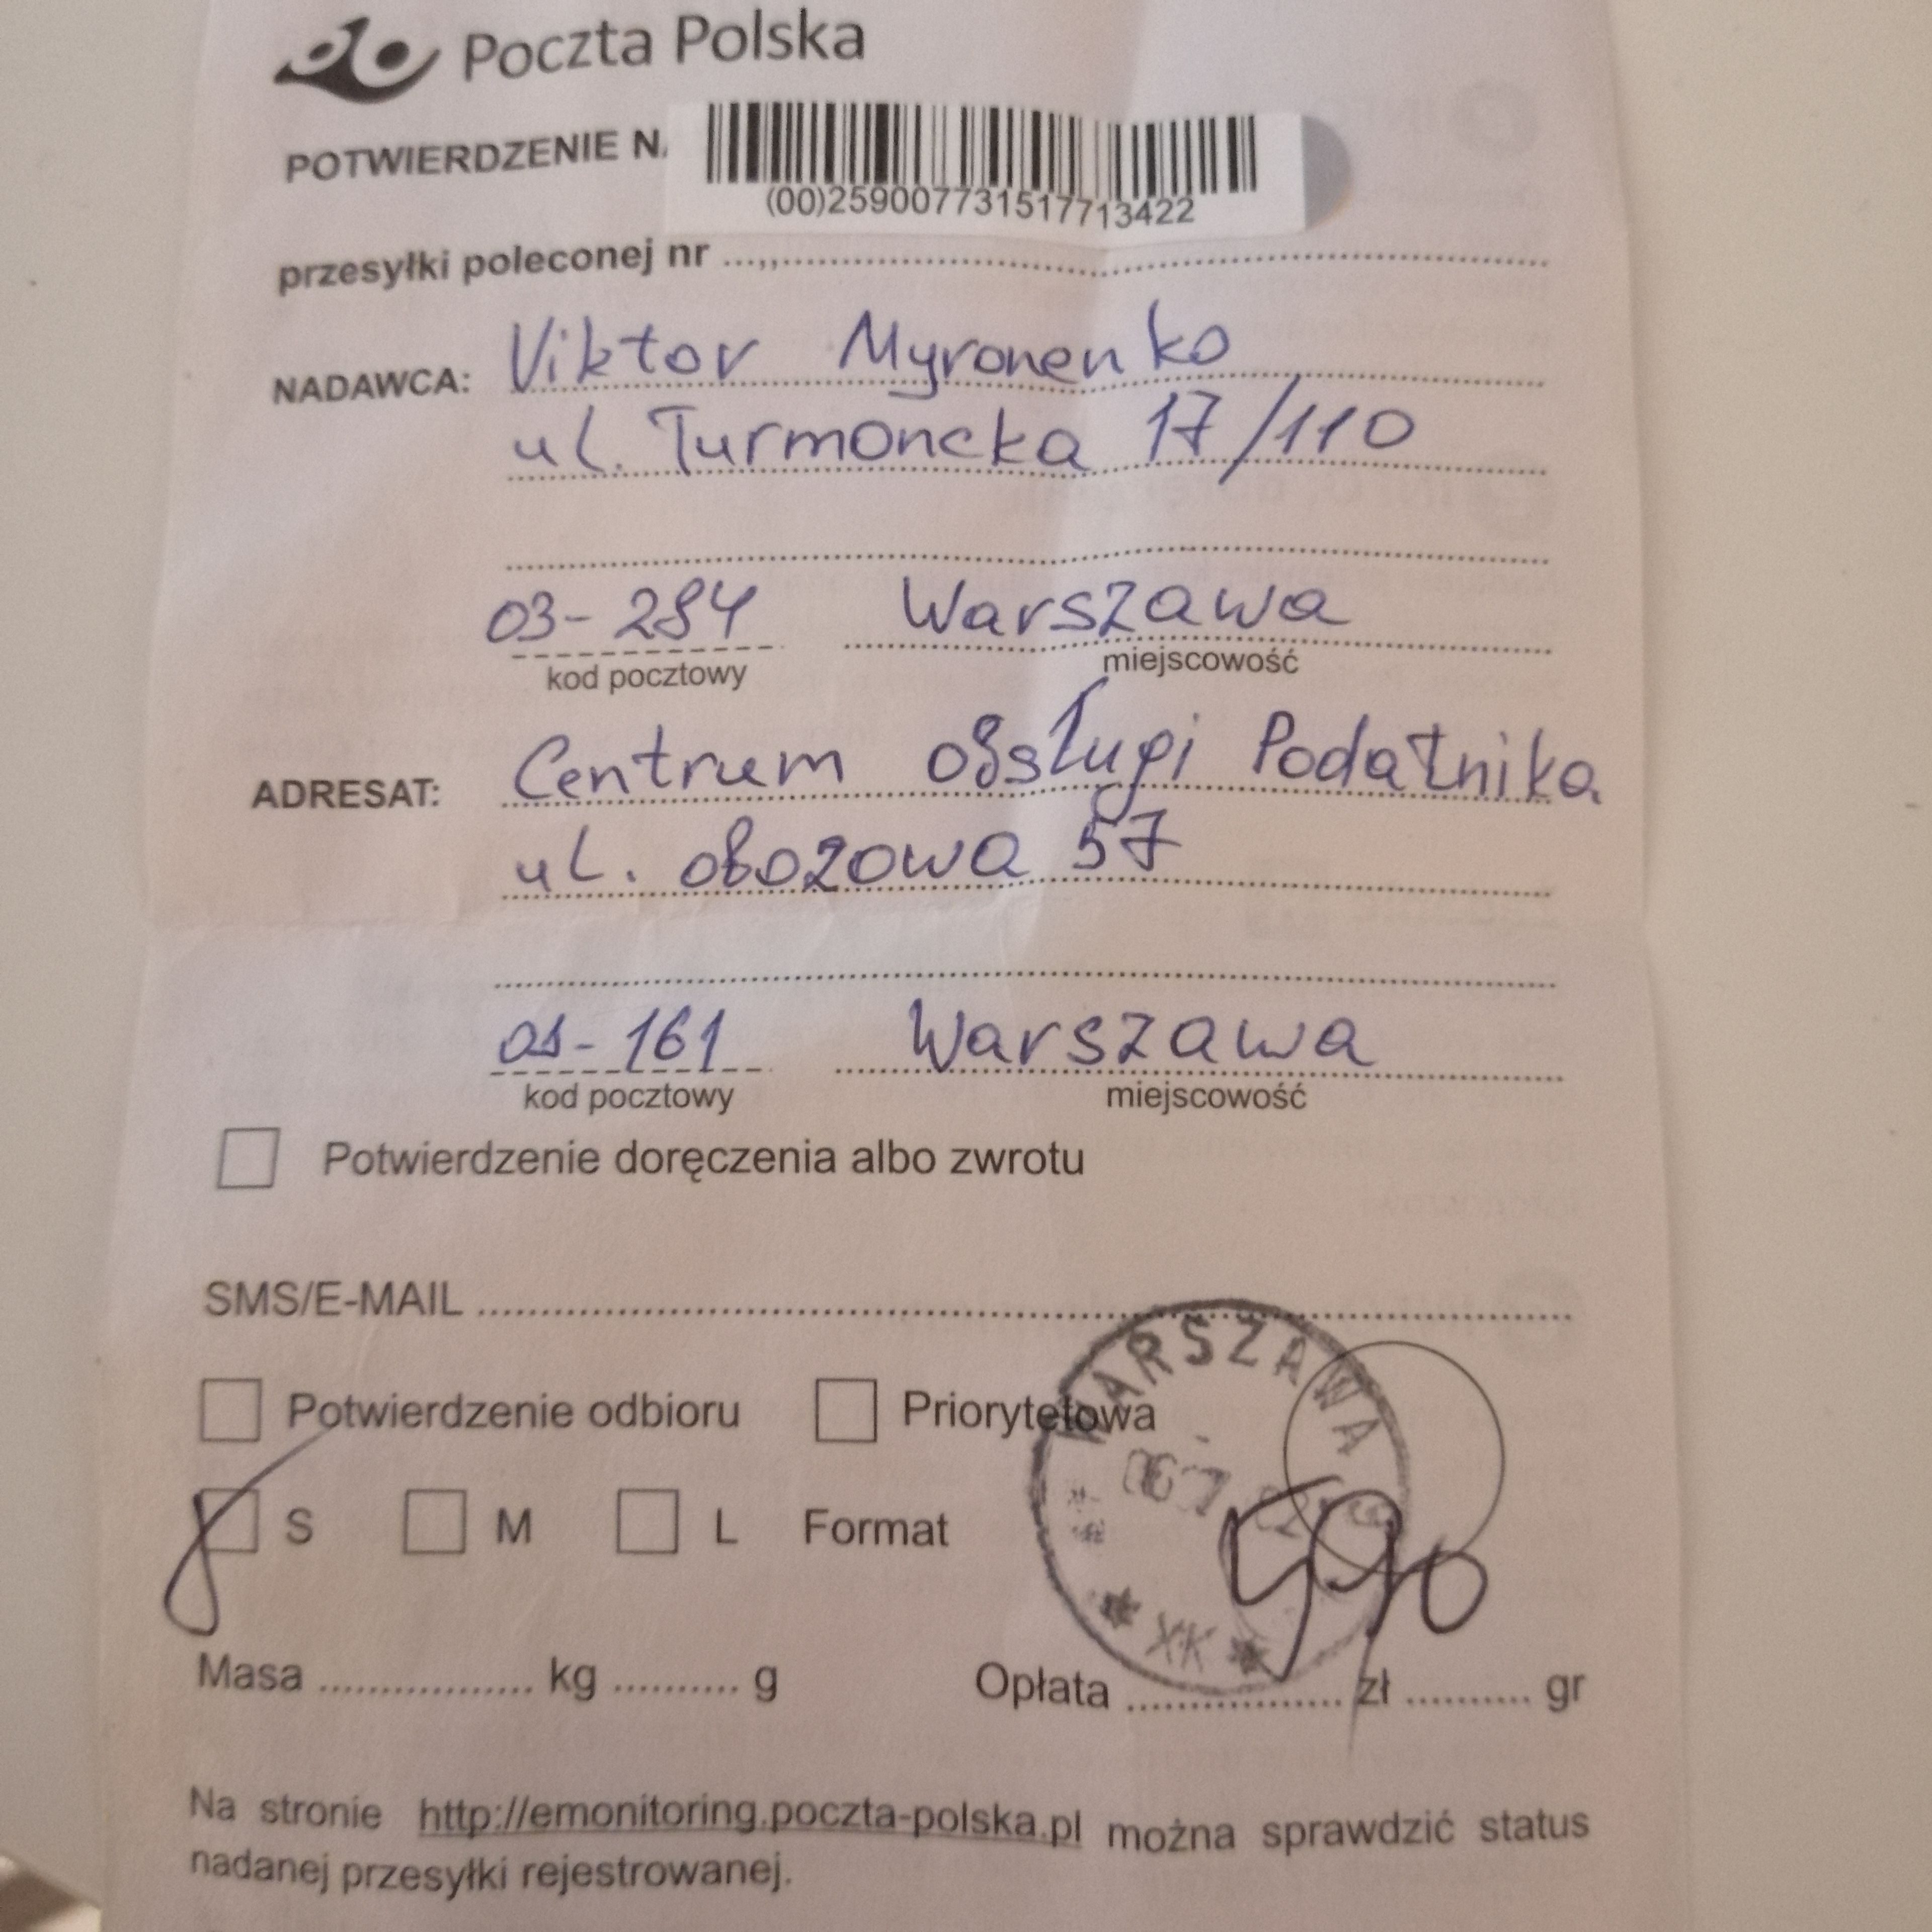 Poczta Polska
POTWIERDZENIE
(00)259007731517713422
przesyłki poleconej nr
NADAWCA: Viktor Myronenko
ul. Turmoncka 17/110
03-254 Warszawa
kod pocztowy miejscowość
ADRESAT: Centrum obsługi Podatnika
ul. obozowa 57
01-161 Warszawa
kod pocztowy miejscowość
Potwierdzenie doręczenia albo zwrotu
SMS/E-MAIL
WARSZAWA
Potwierdzenie odbioru Priorytetowa
S M L Format
XK
Masa kg g Opłata zł gr
Na stronie http://emonitoring.poczta-polska.pl można sprawdzić status
nadanej przesyłki rejestrowanej.